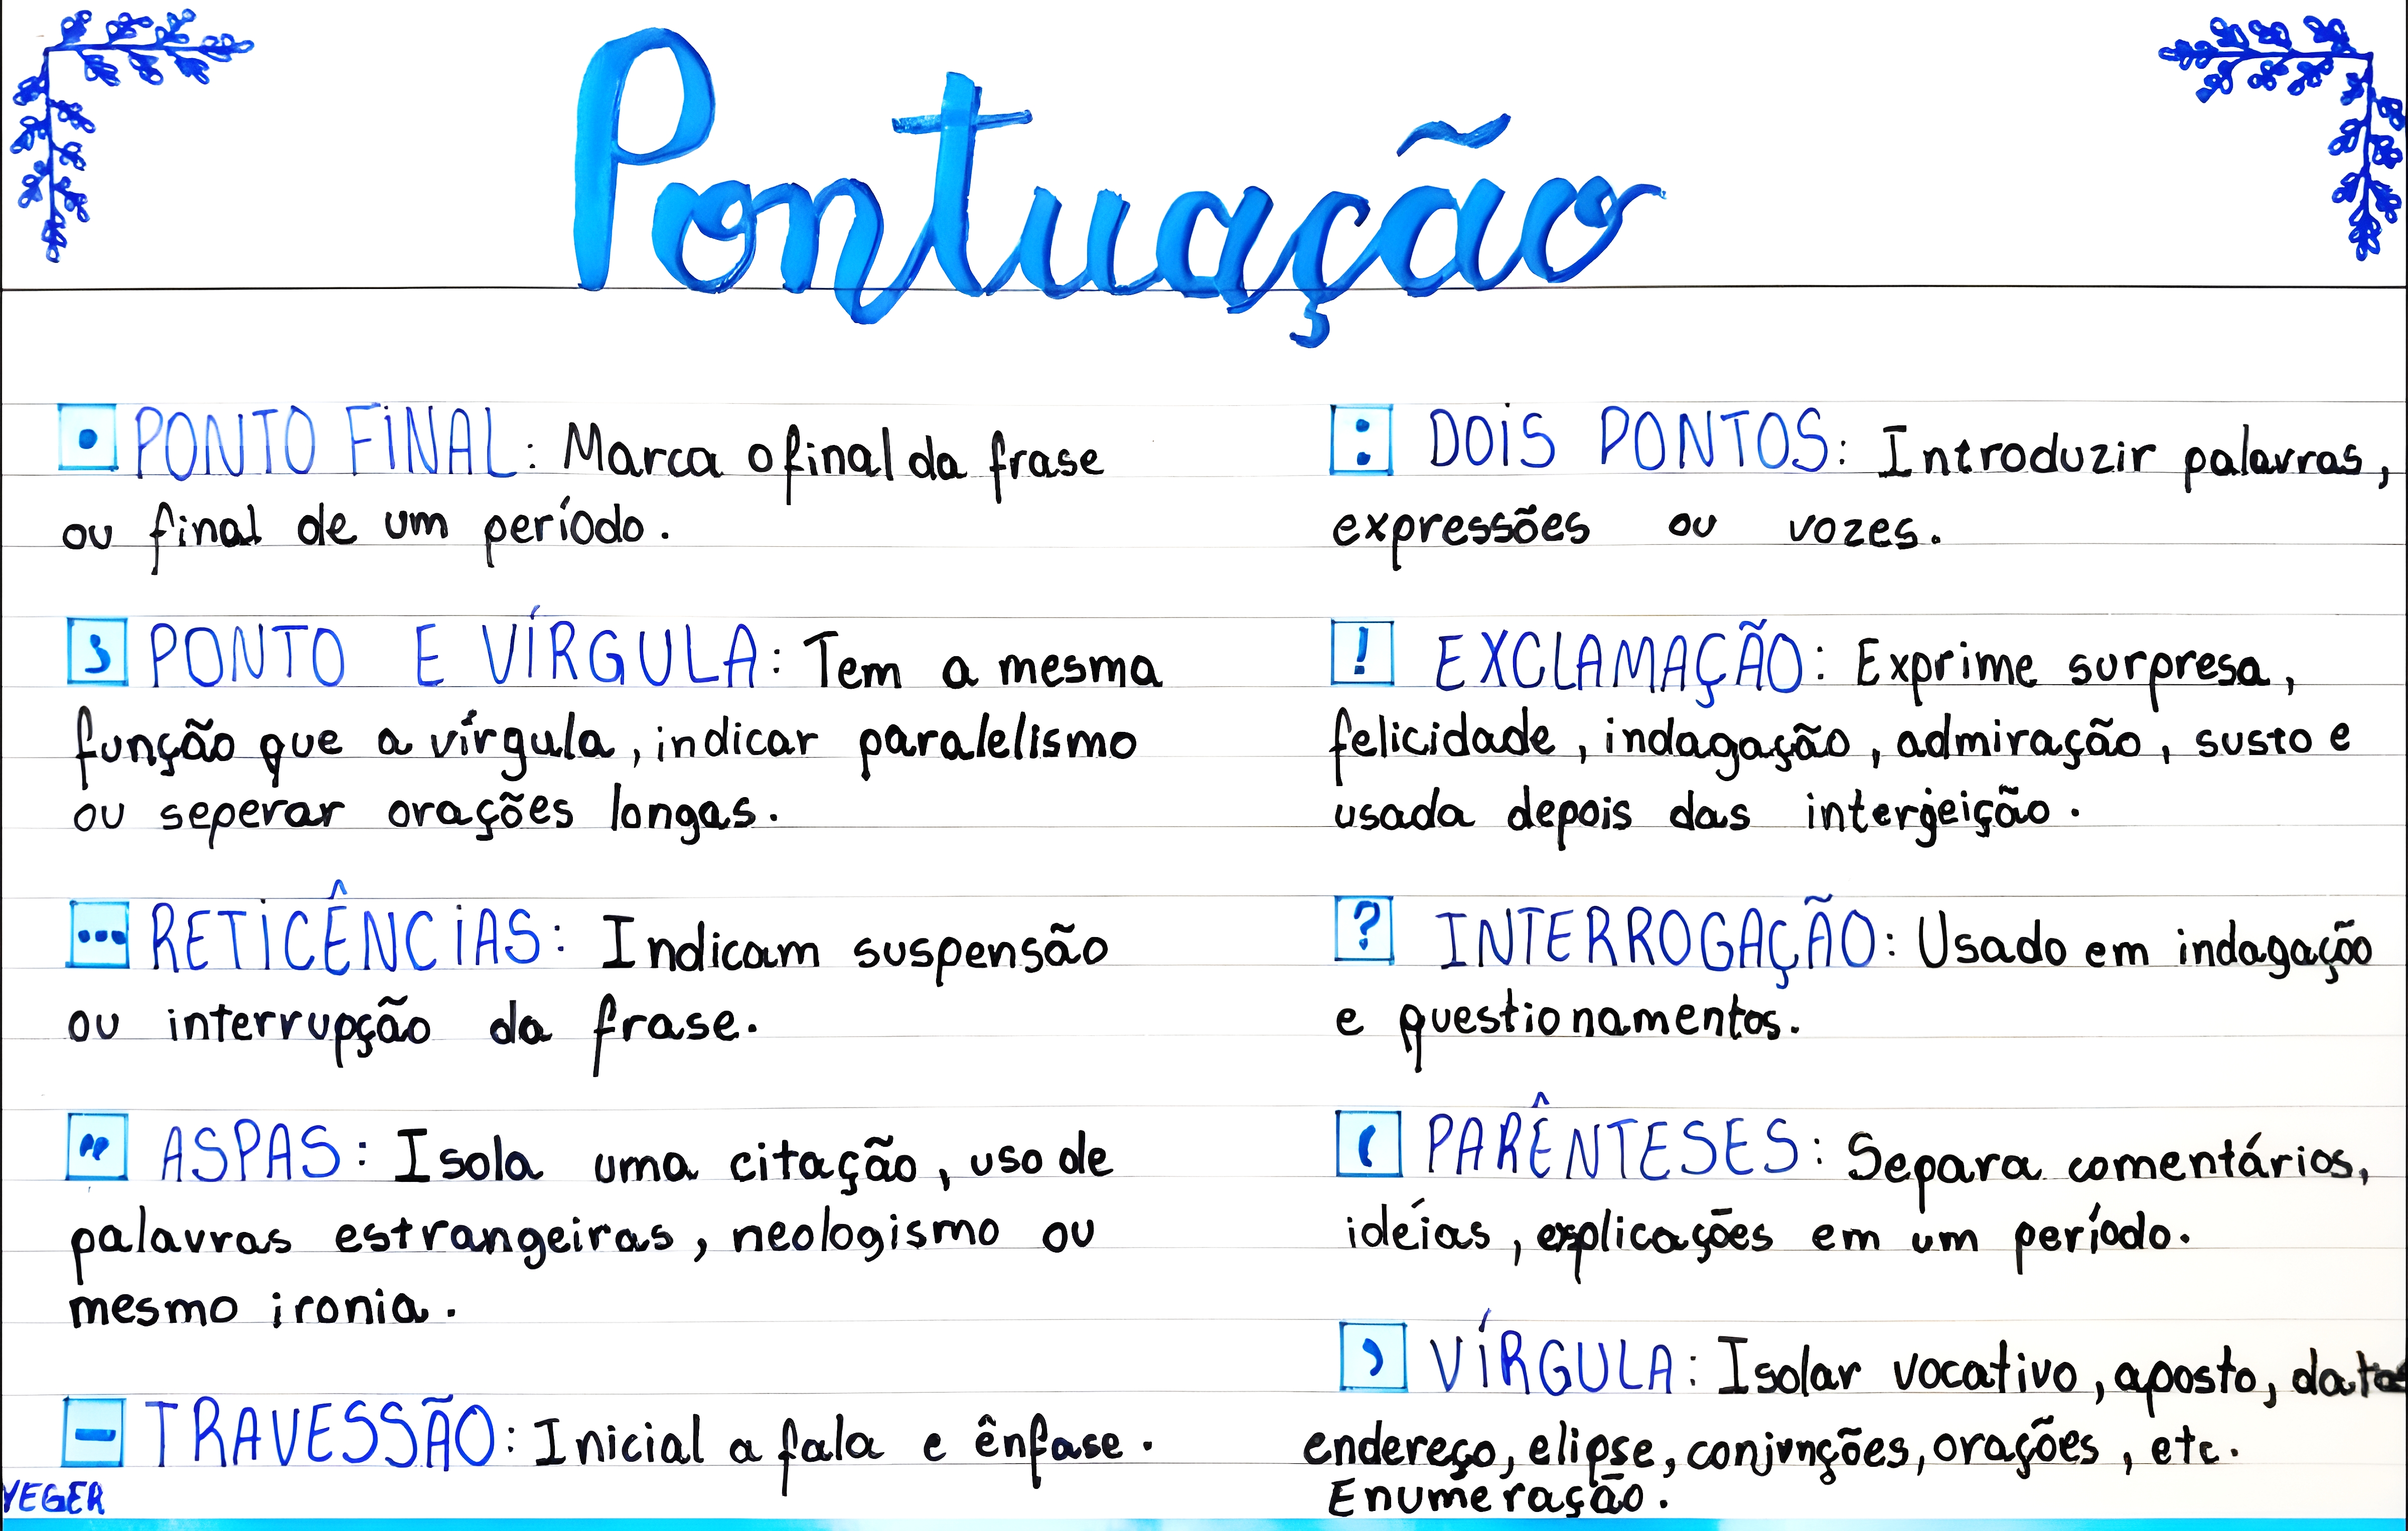 Pontuação
. PONTO FINAL: Marca o final da frase
ou final de um período.
; PONTO E VÍRGULA: Tem a mesma
função que a vírgula, indicar paralelismo
ou seperar orações longas.
... RETICÊNCIAS: Indicam suspensão
ou interrupção da frase.
" ASPAS: Isola uma citação, uso de
palavras estrangeiras, neologismo ou
mesmo ironia.
— TRAVESSÃO: Inicial a fala e ênfase.
YEGER
: DOIS PONTOS: Introduzir palavras,
expressões ou vozes.
! EXCLAMAÇÃO: Exprime surpresa,
felicidade, indagação, admiração, susto e
usada depois das interjeição.
? INTERROGAÇÃO: Usado em indagação
e questionamentos.
( PARÊNTESES: Separa comentários,
idéias, explicações em um período.
, VÍRGULA: Isolar vocativo, aposto, datas
endereço, elipse, conjunções, orações, etc.
Enumeração.